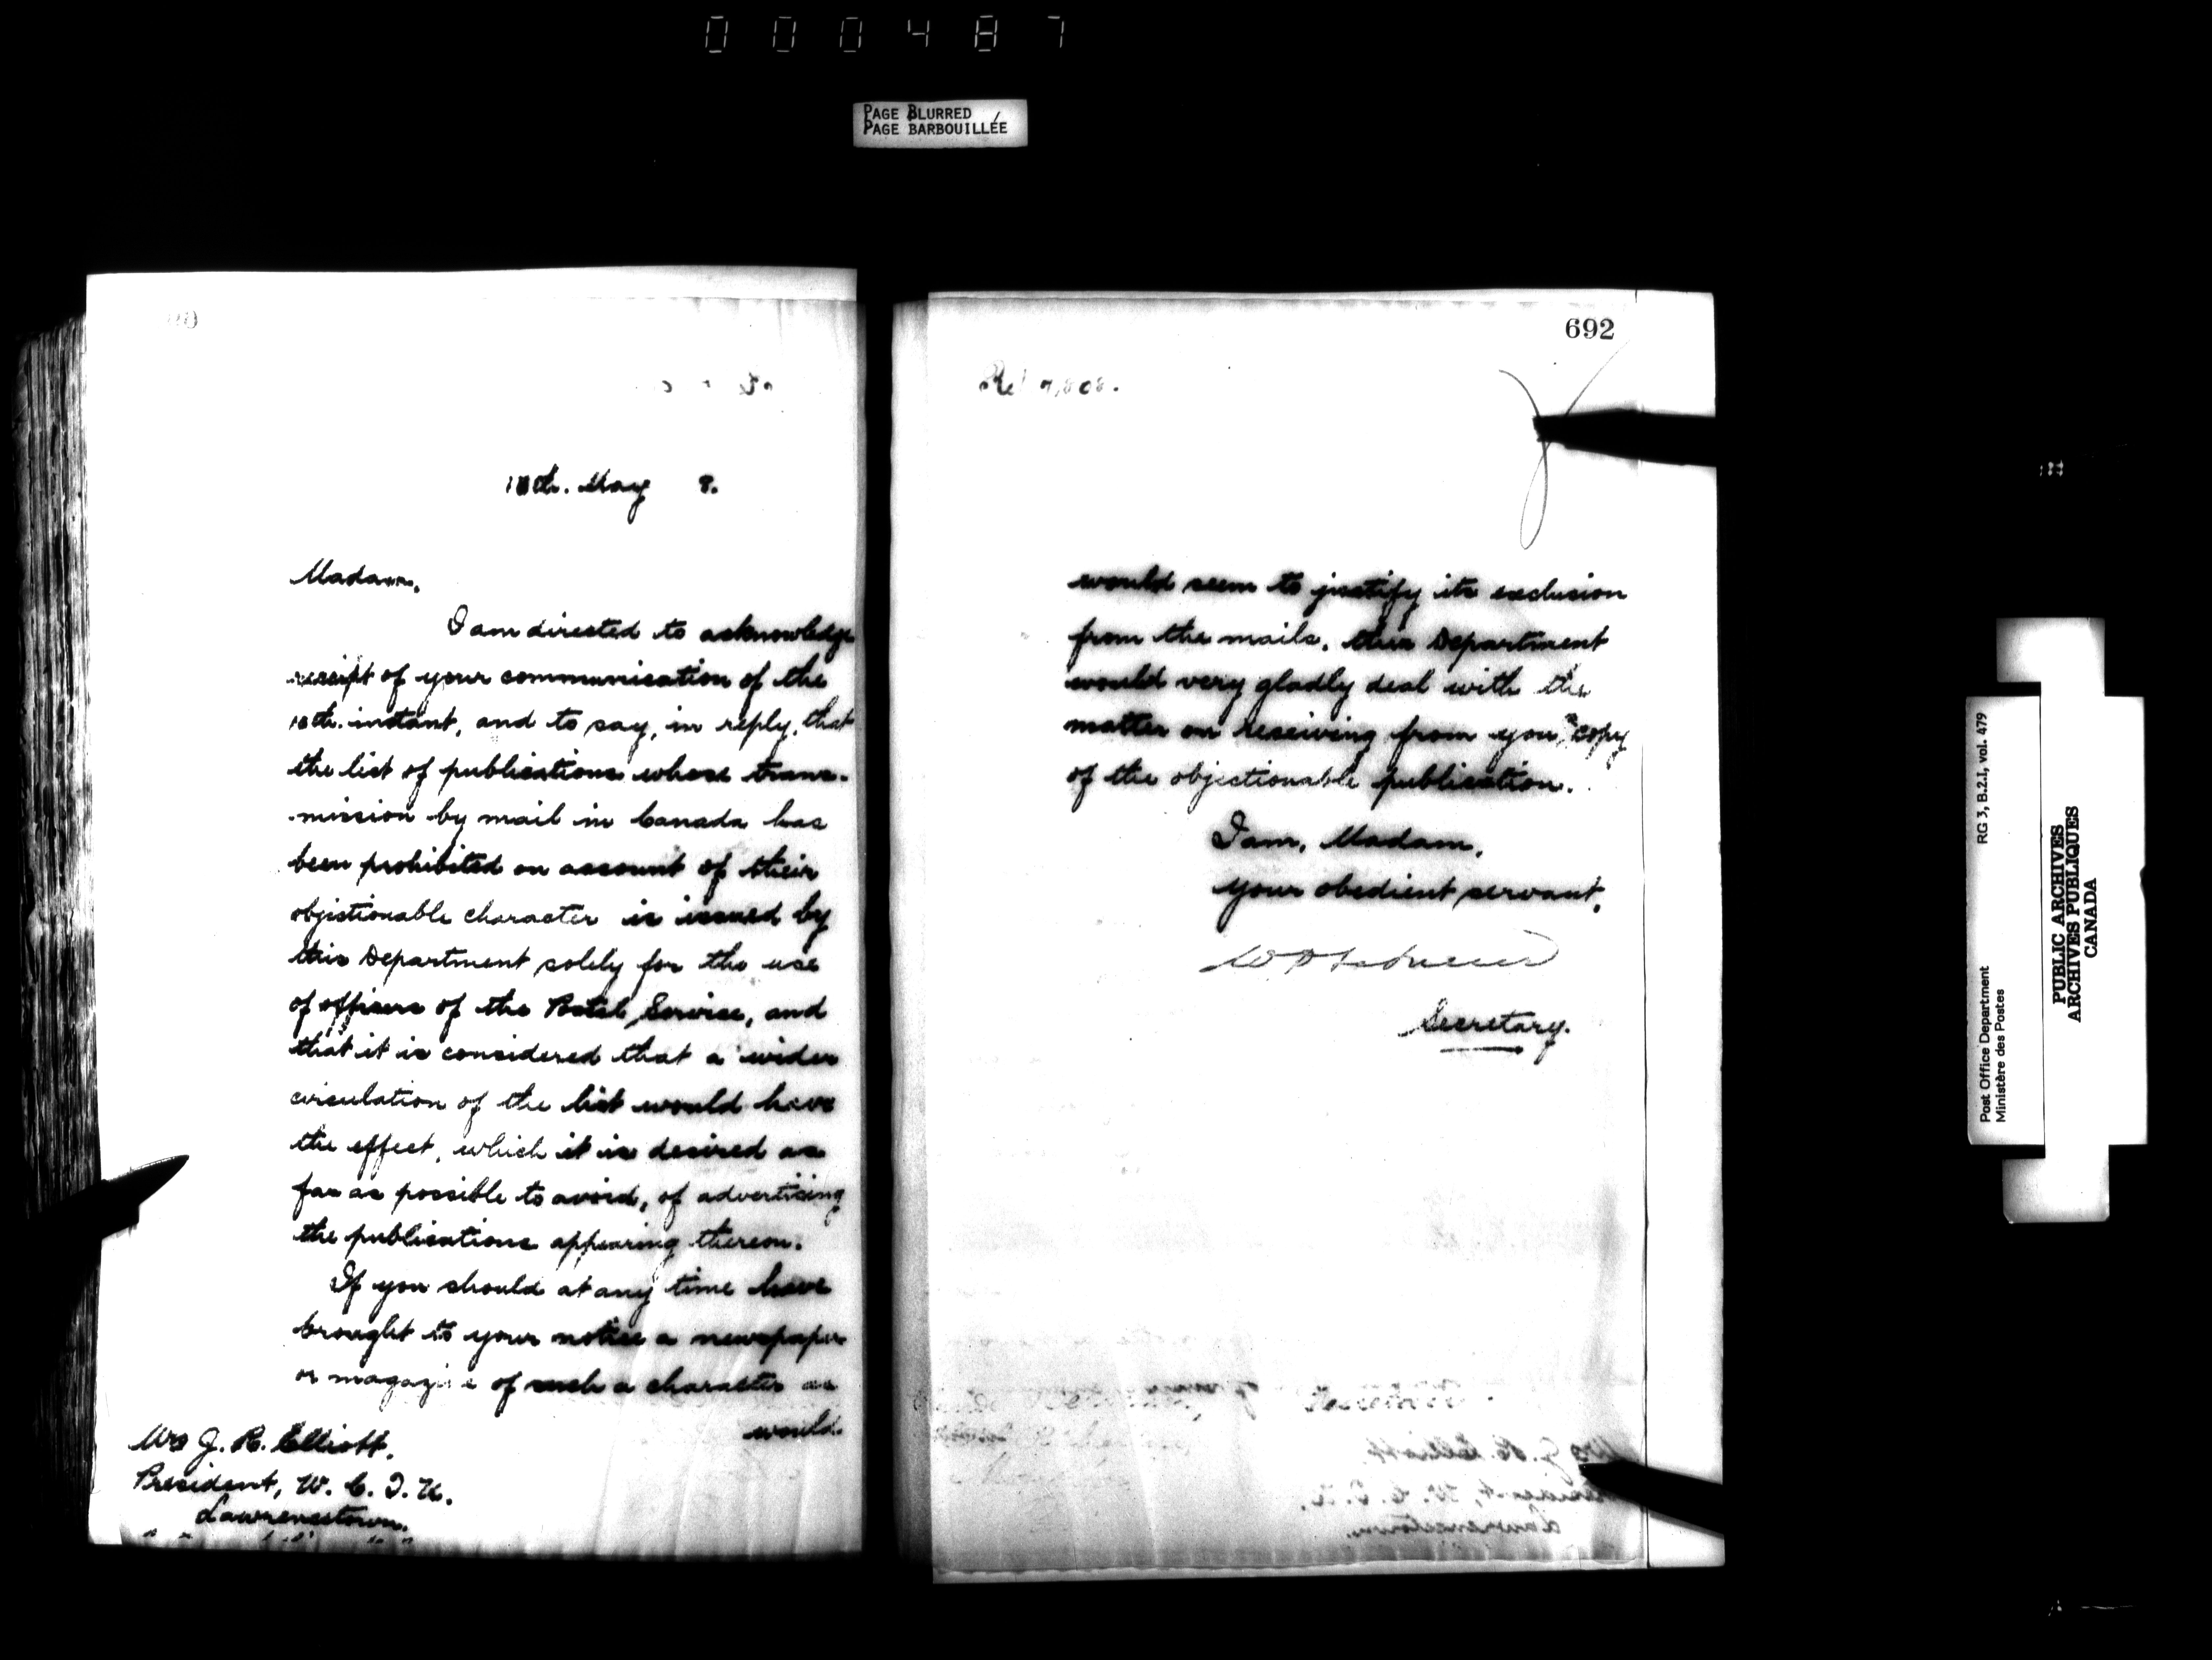 000487
PAGE BLURRED
PAGE BARBOUILLÉE
th. May 8.
Madam,
I am directed to acknowledge
receipt of your communication of the
10th. instant, and to say, in reply, that
the list of publications whose trans-
mission by mail in Canada has
been prohibited on account of their
objectionable character is issued by
this Department solely for the use
of officers of the Postal Service, and
that it is considered that a wider
circulation of the list would have
the effect, which it is desired as
far as possible to avoid, of advertising
the publications appearing thereon.
If you should at any time have
brought to your notice a newspaper
or magazine of such a character as
would
Mrs J. R. Elliott,
President, W. C. T. U.
Lawrencetown,
692
would seem to justify its exclusion
from the mails, this Department
would very gladly deal with the
matter on receiving from you a copy
of the objectionable publication.
I am, Madam,
your obedient servant,
Secretary.
Post Office Department
Ministère des Postes
RG 3, B.2.I, vol. 479
PUBLIC ARCHIVES
ARCHIVES PUBLIQUES
CANADA